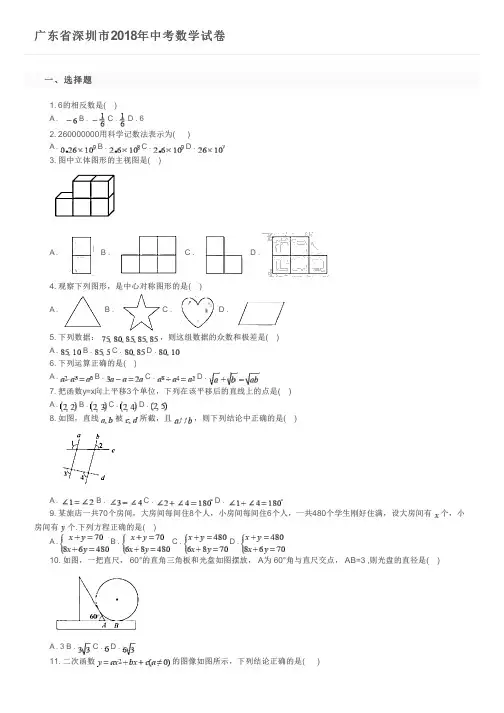 广东省深圳市2018年中考数学试卷
一、选择题
1. 6的相反数是( )
A . −6 B . −1/6 C . 1/6 D . 6
2. 260000000用科学记数法表示为( )
A . 0.26×10⁹ B . 2.6×10⁸ C . 2.6×10⁹ D . 26×10⁷
3. 图中立体图形的主视图是( )
A . B . C . D .
4. 观察下列图形，是中心对称图形的是( )
A . B . C . D .
5. 下列数据： 75, 80, 85, 85, 85 ，则这组数据的众数和极差是( )
A . 85, 10 B . 85, 5 C . 80, 85 D . 80, 10
6. 下列运算正确的是( )
A . B . 3a−a=2a C . D . √a+√b=√ab
7. 把函数y=x向上平移3个单位，下列在该平移后的直线上的点是( )
A . (2, 2) B . (2, 3) C . (2, 4) D . (2, 5)
8. 如图，直线 a, b 被 c, d 所截，且 a//b ，则下列结论中正确的是( )
a b
1 2 c
3 4 d
A . ∠1=∠2 B . ∠3=∠4 C . ∠2+∠4=180° D . ∠1+∠4=180°
9. 某旅店一共70个房间，大房间每间住8个人，小房间每间住6个人，一共480个学生刚好住满，设大房间有 x 个，小
房间有 y 个.下列方程正确的是( )
A . {x+y=70 B . {x+y=70 C . {x+y=480 D . {x+y=480
8x+6y=480 6x+8y=480 6x+8y=70 8x+6y=70
10. 如图，一把直尺， 60°的直角三角板和光盘如图摆放， A为 60°角与直尺交点， AB=3 ,则光盘的直径是( )
60°
A B
A . 3 B . 3√3 C . 6 D . 6√3
11. 二次函数 y=ax²+bx+c(a≠0) 的图像如图所示，下列结论正确的是( )